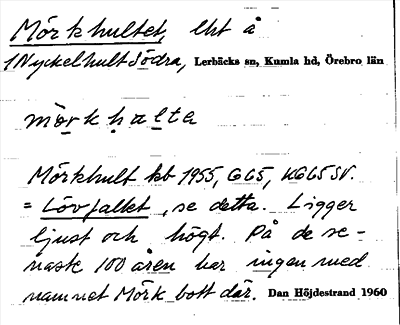 Mörkhultet, lht å
1 Nyckelhult Södra, Lerbäcks sn, Kumla hd, Örebro län
mörkhalta
Mörkhult kb 1955, GG5, KGL5SV.
= Lövfallet, se detta. Ligger
ljust och högt. På de se-
naste 100 åren har ingen med
namnet Mörk bott där. Dan Höjdestrand 1960